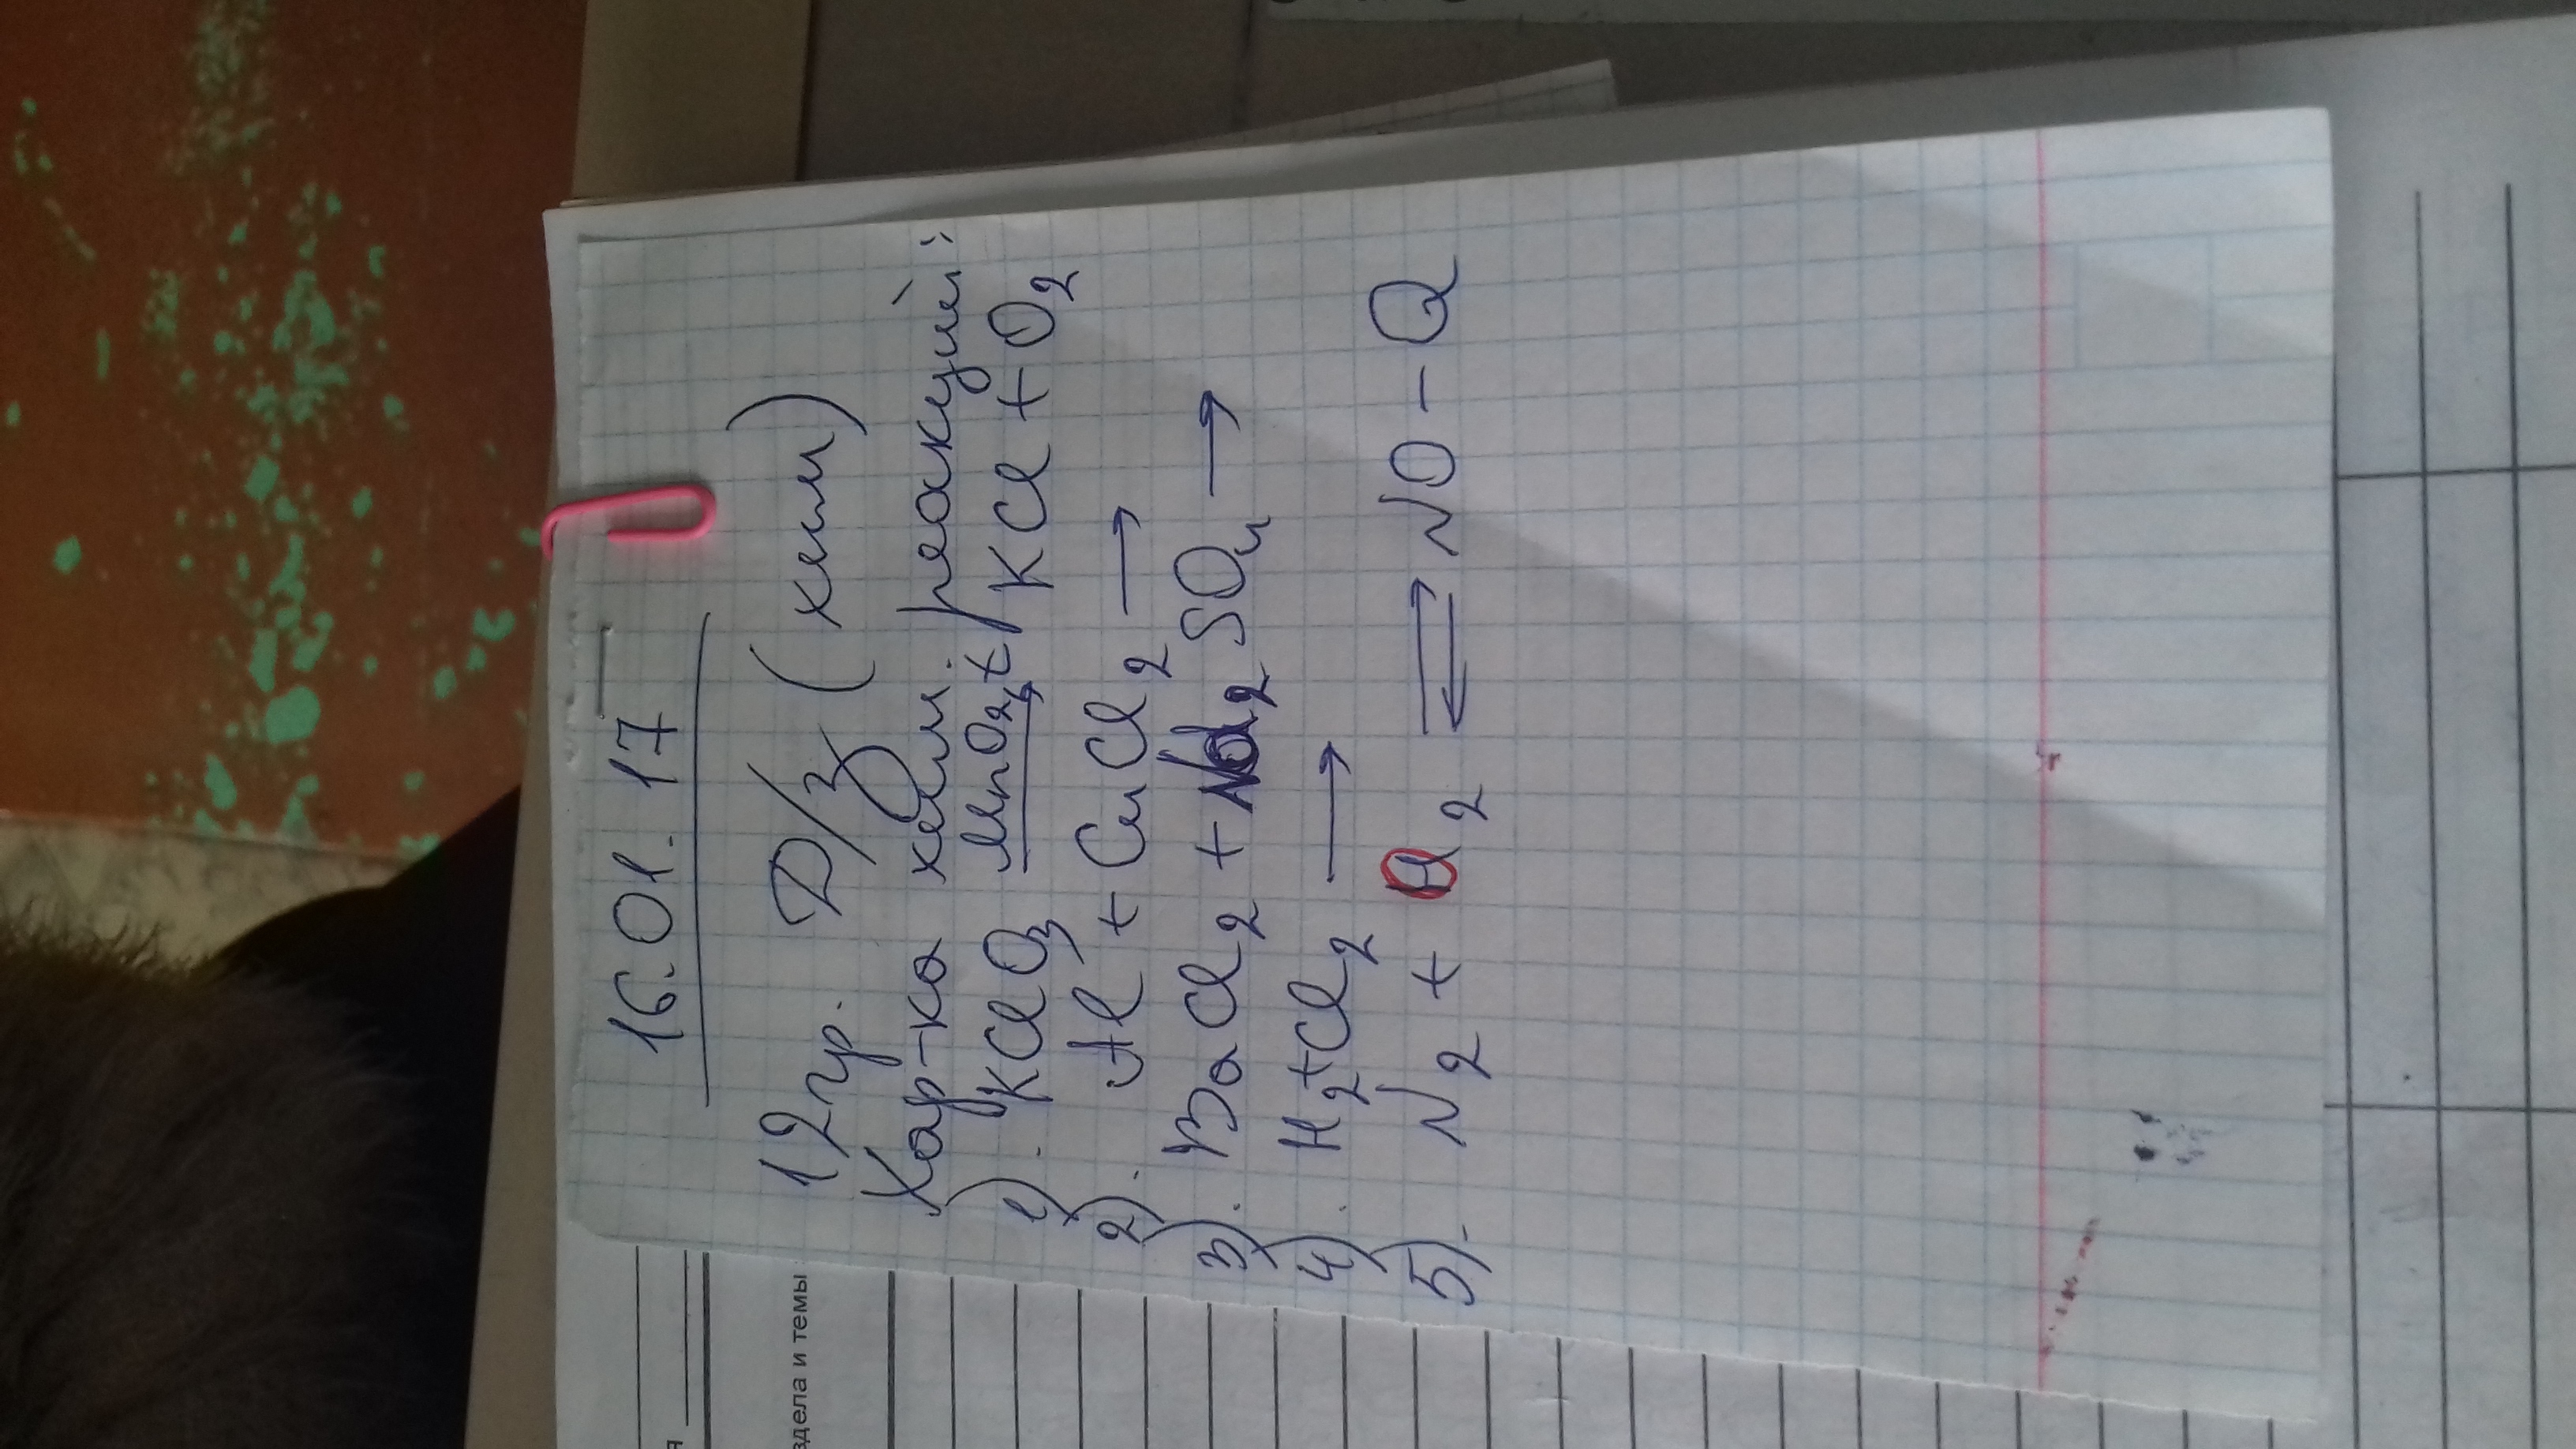 16.01.17
12 гр. Д/з (хим)
Хар-ка хим. реакций:
1). KClO3 MnO2, t KCl + O2
2). Al + CuCl2 →
3). BaCl2 + Na2SO4 →
4). H2 + Cl2 →
5). N2 + O2 ⇄ NO - Q
здела и темы
я